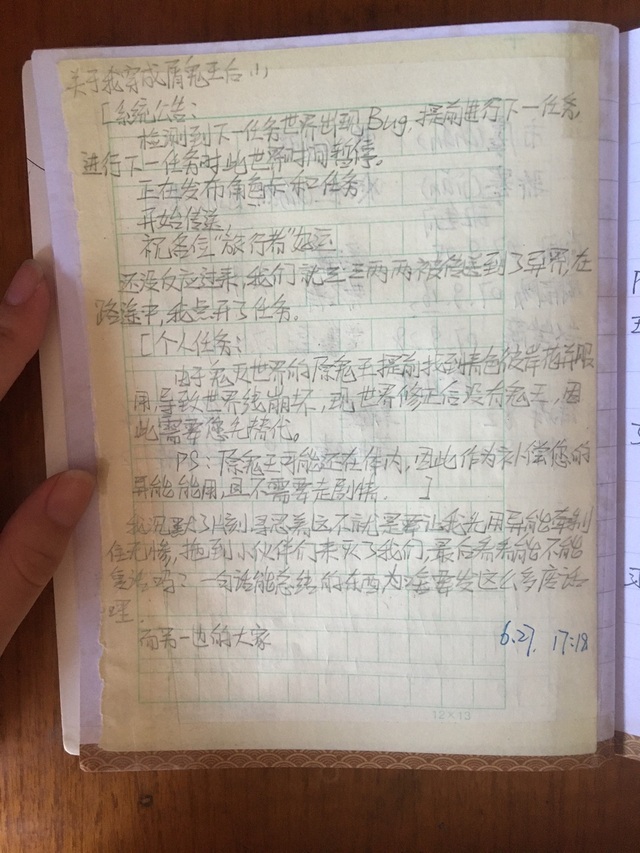 关于我穿成屑鬼王后(1)
[系统公告:
检测到下一任务世界出现Bug,提前进行下一任务,
进行下一任务时此世界时间暂停。
正在发布角色卡和任务
开始传送
祝各位“旅行者”好运
还没反应过来,我们就三三两两被传送到了异界,在
路途中,我点开了任务。
[个人任务:
由于鬼灭世界的原鬼王提前找到青色彼岸花并服
用,导致世界线崩坏,现世界修正后没有鬼王,因
此需要您先替代。
PS:原鬼王可能还在体内,因此作为补偿您的
异能能用,且不需要走剧情。]
我沉默了片刻寻思着这不就是要让我先用异能牵制
住无惨,拖到小伙伴们来灭了我们,最后看看能不能
复活吗?一句话能总结的东西为啥要发这么多废话
哩.
而另一边的大家
6.27. 17:18
12×13